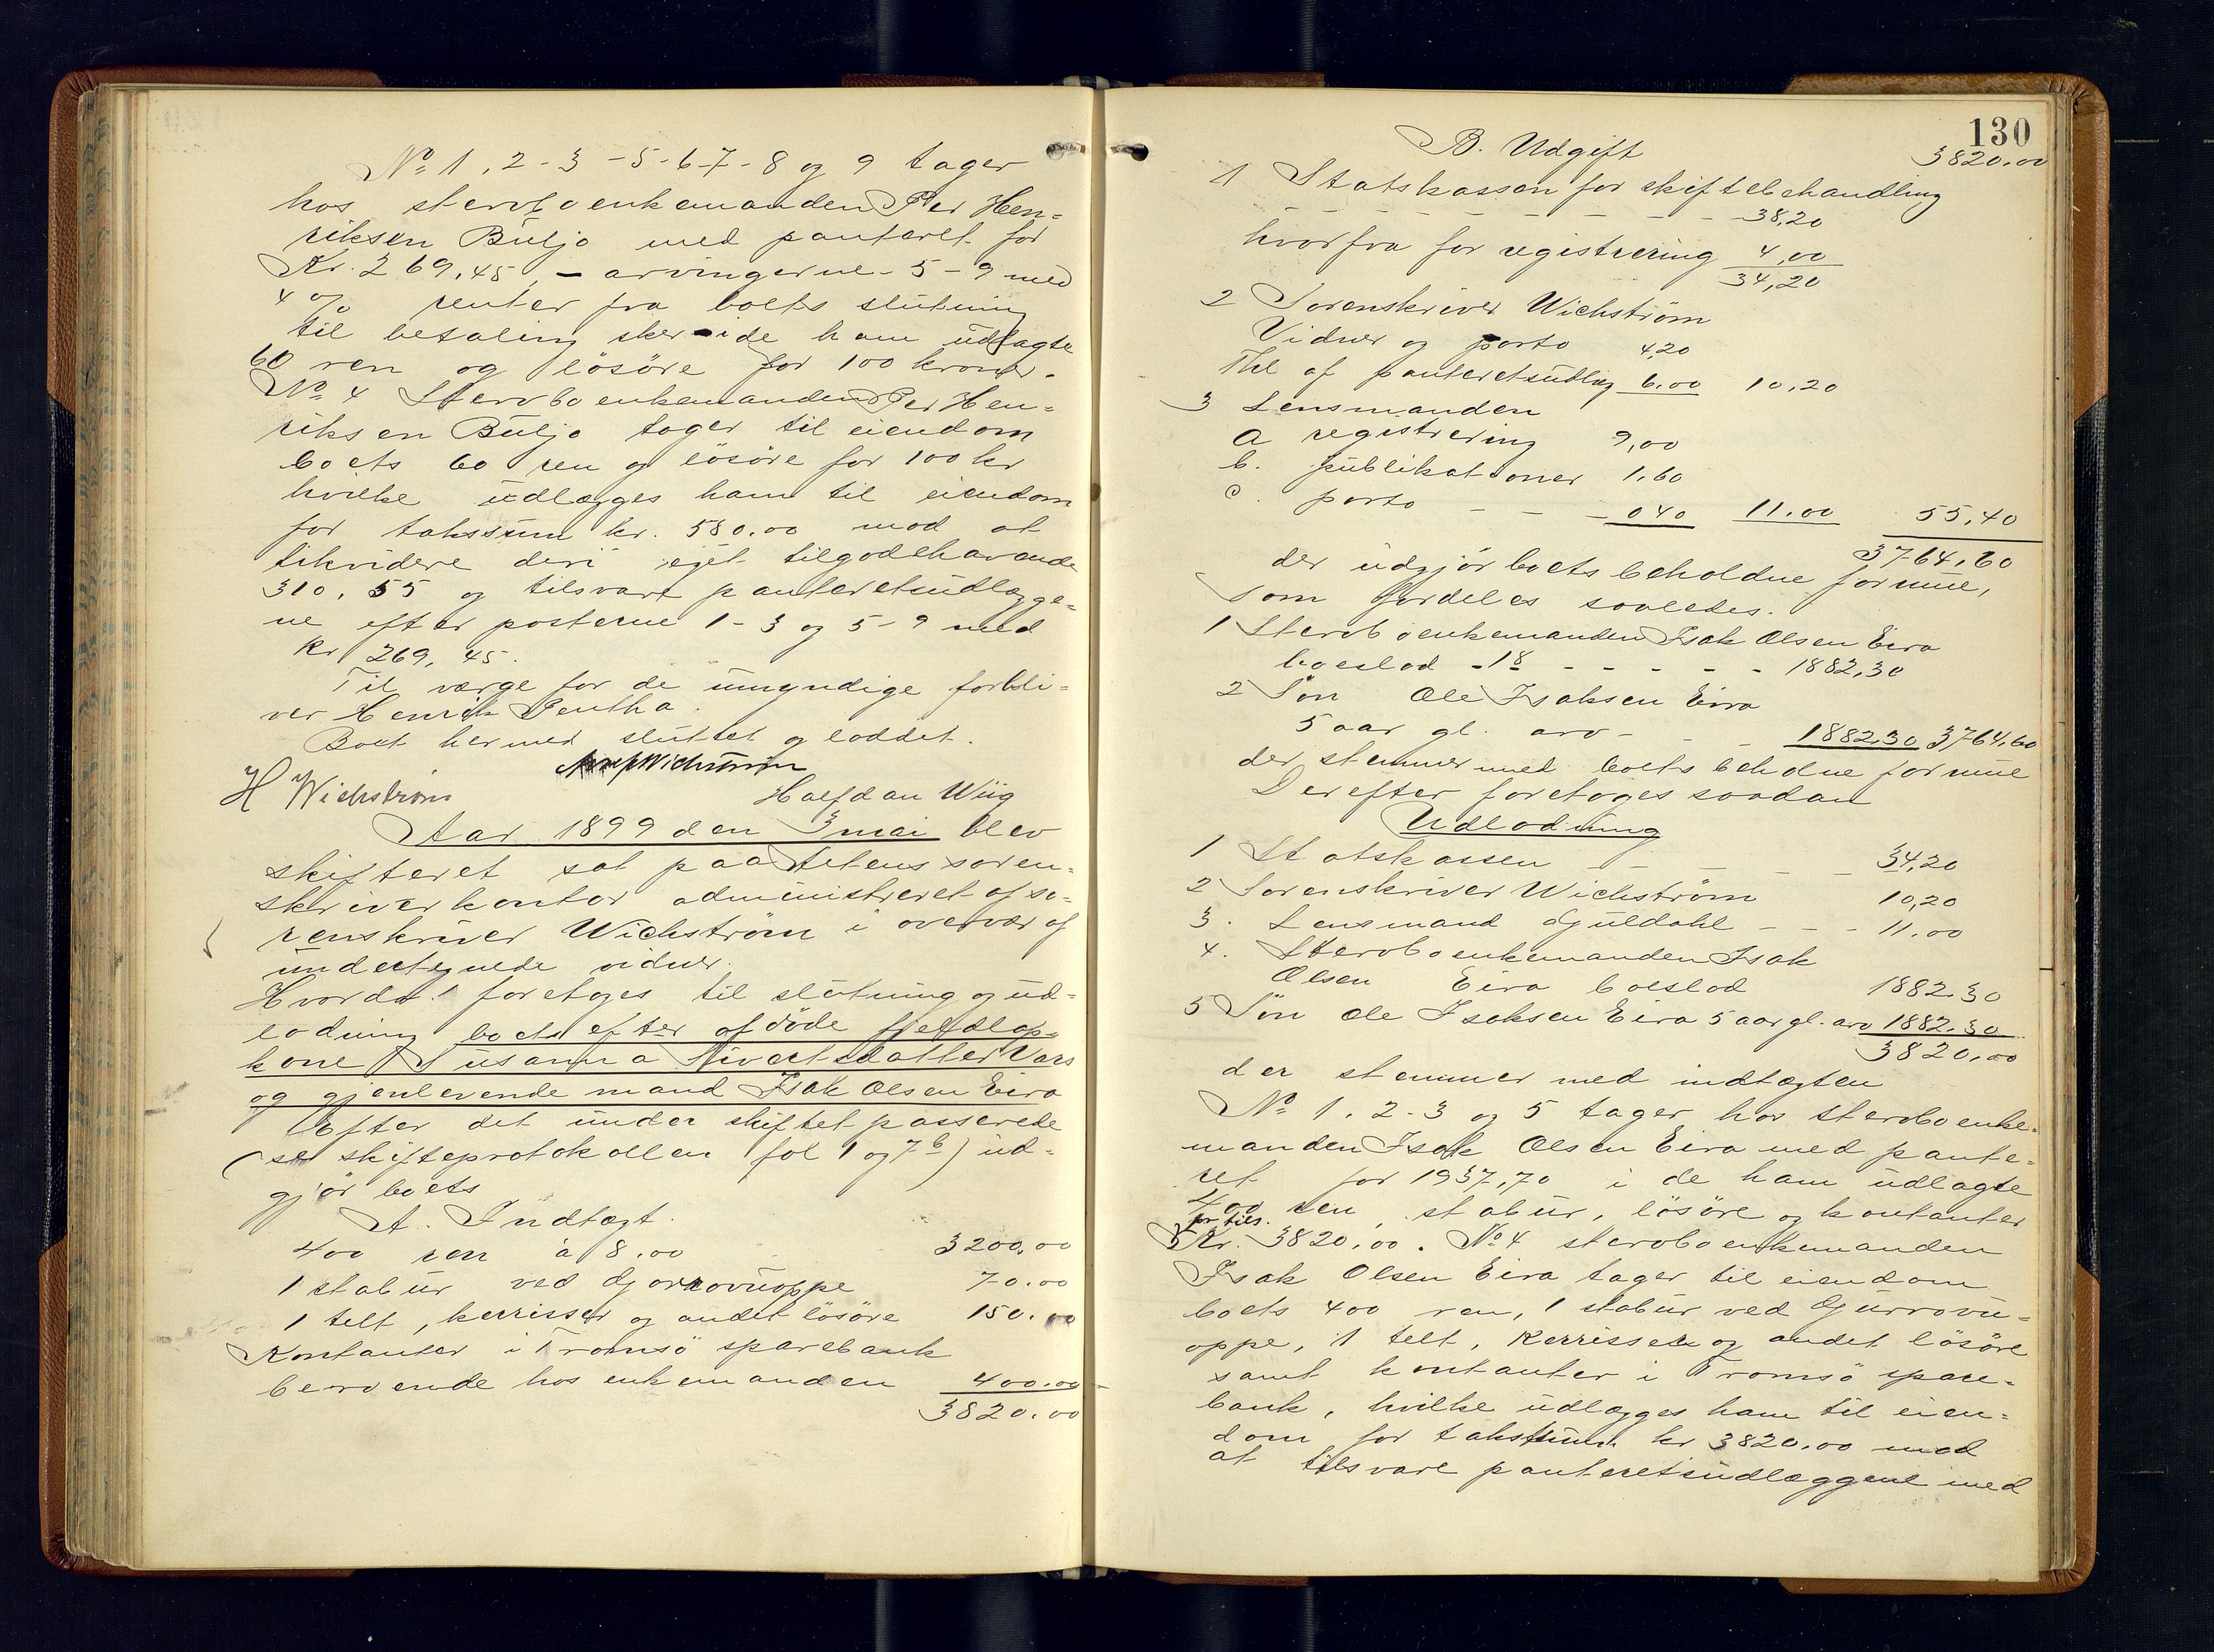 No 1, 2 - 3 - 5 - 6 - 7 - 8 og 9 tager
hos sterboenkemanden Per Hen=
riksen Buljo med panteret for
Kr. 269,45, - arvingerne - 5 - 9 med
4 % renter fra boets slutning
til betaling sker - i de ham udlagte
60 ren og lösöre for 100 kroner.
No 4 Sterboenkemanden Per Hen=
riksen Buljo tager til eiendom
boets 60 ren og lösöre for 100 kr
hvilke udlægges ham til eiendom
for takssum kr. 580.00 mod at
likvidere deri eget tilgodehavende
310,55 og tilsvare panteretsudlægge=
ne efter posterne 1 - 3 og 5 - 9 med
kr 269,45.
Til værge for de umyndige forbli=
ver Henrik Pentha.
Boet hermed sluttet og loddet.
Wichström
H Wichström Halfdan Wiig
Aar 1899 den 3 mai blev
skifteret sat paa Altens soren=
skriverkontor administreret af so=
renskriver Wichström i overvær af
undertegnede vidner.
Hvorda foretoges til slutning og ud=
lodning boet efter afdöde fjeldlap=
kone Susanna Sivertsdatter Vars
og gjenlevende mand Isak Olsen Eira
Efter det under skiftet passerede
(se skifteprotokollen fol 1 og 7b) ud=
gjör boets
A. Indtægt.
400 ren à 8.00 3200.00
1 stabur ved Gjorrovuoppe 70.00
1 telt, kerrisser og andet lösöre 150.00
Kontanter i Tromsö sparebank
beroende hos enkemanden 400.00
3820.00
130
B. Udgift 3820.00
1 Statskassen for skiftebehandling
- - - - - - - - 38,20
hvorfra for registrering 4,00
34,20
2 Sorenskriver Wichström
Vidner og porto 4,20
Thl af panteretsudlæg 6.00 10,20
3 Lensmanden
a registrering 9,00
b. publikationer 1,60
c. porto - - - 040 11.00 55,40
3764,60
der udgjör boets beholdne formue,
som fordeles saaledes.
1 Sterboenkemanden Isak Olsen Eira
boeslod - - - - - 1882,30
2 Sön Ole Isaksen Eira
5 aar gl. arv - - - 1882,30 3764,60
der stemmer med boets beholdne formue
Derefter foretoges saadan
Udlodning
1 Statskassen - - - - 34,20
2 Sorenskriver Wichström 10,20
3. Lensmand Gjuldahl - - - 11.00
4. Sterboenkemanden Isak
Olsen Eira boeslod 1882.30
5 Sön Ole Isaksen Eira 5 aar gl. arv 1882.30
3820.00
der stemmer med indtægten
No 1. 2 - 3 og 5 tager hos sterboenke=
manden Isak Olsen Eira med pante=
ret for 1937,70 i de ham udlagte
400 ren, stabur, lösöre og kontanter
for tils.
Kr. 3820.00. No 4 sterboenkemanden
Isak Olsen Eira tager til eiendom
boets 400 ren, 1 stabur ved Gjurrovu=
oppe, 1 telt, kerrisser og andet lösöre
samt kontanter i Tromsö spare=
bank, hvilke udlægges ham til eien=
dom for takstsum kr 3820.00 mod
at tilsvare panteretsudlæggene med